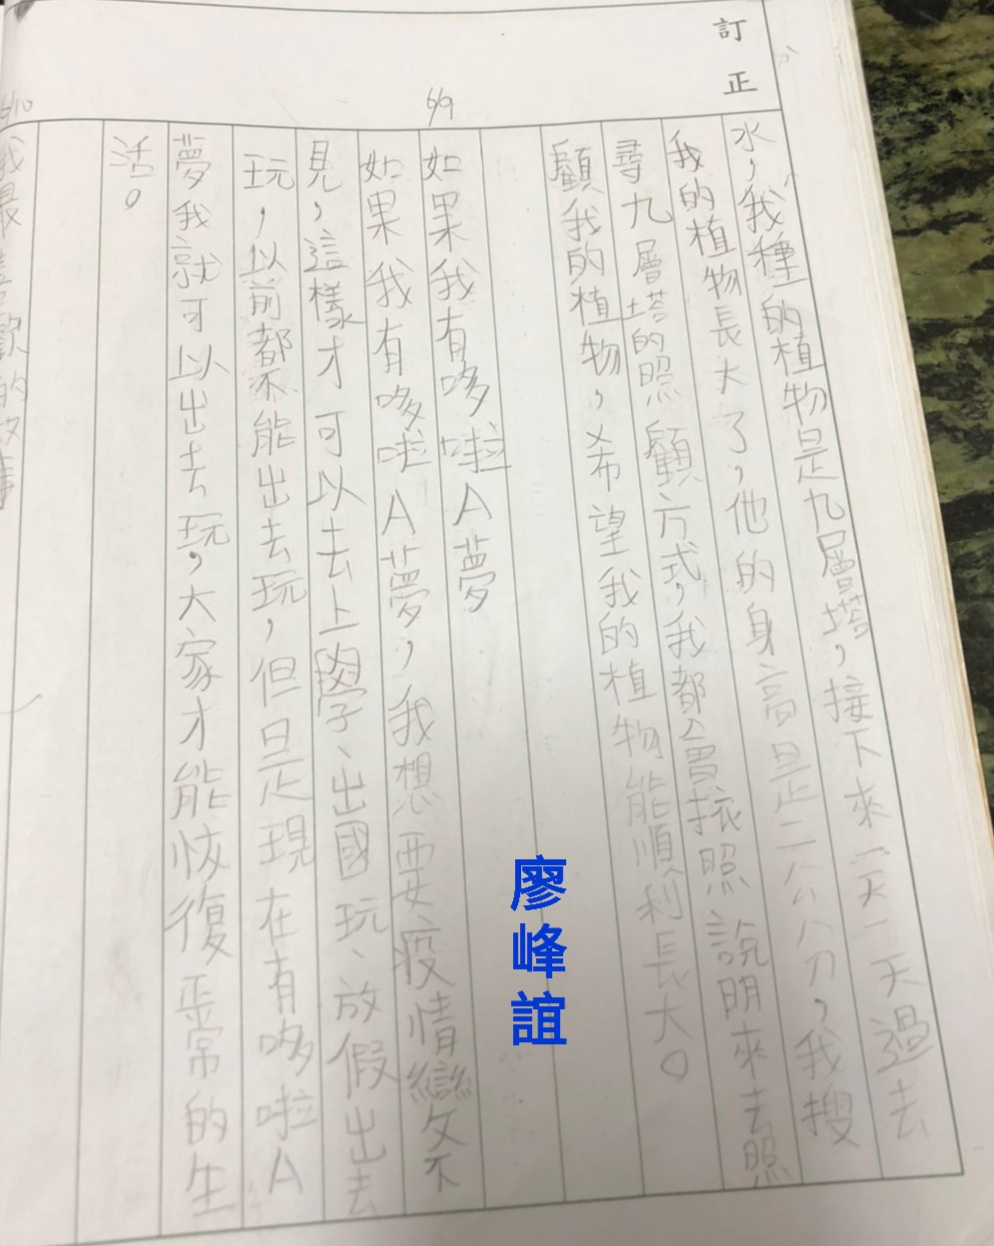 訂正
水，我種的植物是九層塔，接下來一天一天過去
我的植物長大了，他的身高是二公分，我搜
尋九層塔的照顧方式，我都會按照說明來去照
顧我的植物，希望我的植物能順利長大。
廖峰誼
6/9
如果我有哆啦A夢
如果我有哆啦A夢，我想要疫情變不
見，這樣才可以去上學、出國玩、放假出去
玩，以前都不能出去玩，但是現在有哆啦A
夢我就可以出去玩，大家才能恢復正常的生
活。
6/10
我最喜歡的故事